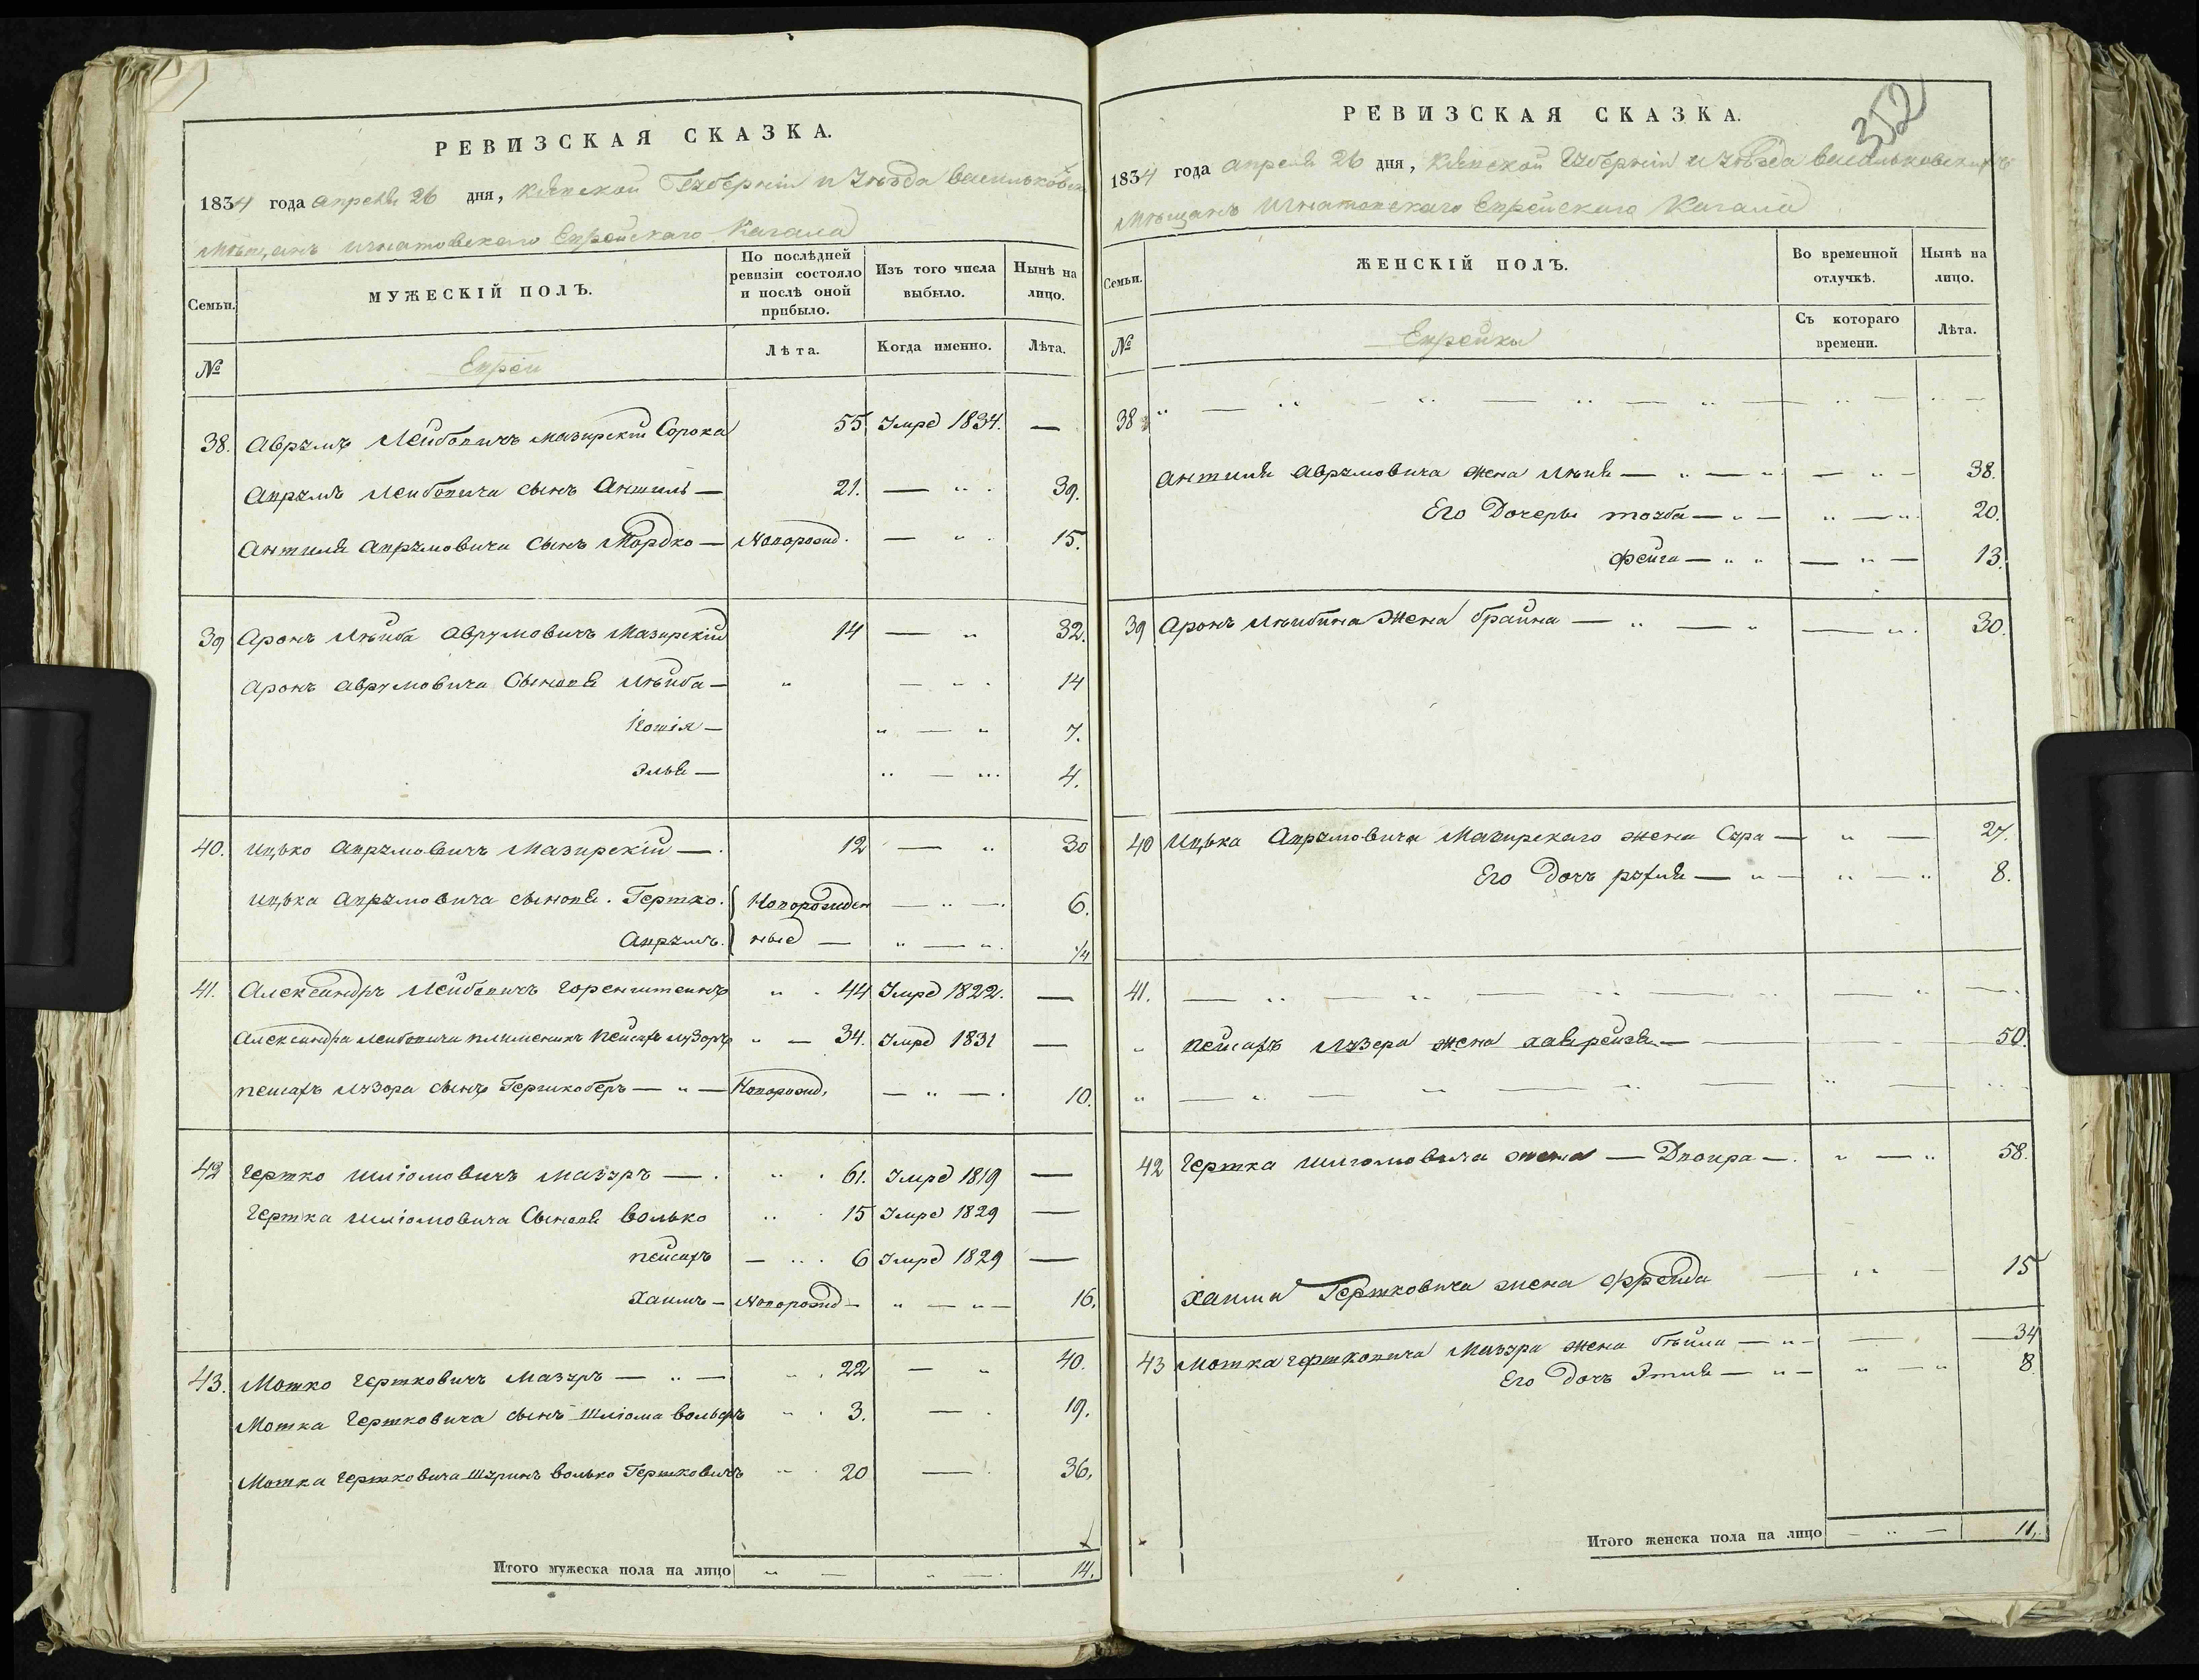 РЕВИЗСКАЯ СКАЗКА.
1834 года апреля 26 дня, Кіевской Губерніи и Уѣзда васильковских
Мѣщанъ Игнатовского Еврейскаго Кагала
Семьи.
МУЖЕСКІЙ ПОЛЪ.
По послѣдней ревизіи состояло и послѣ оной прибыло.
Изъ того числа выбыло.
Нынѣ на лицо.
№
Евреи
Лѣта.
Когда именно.
Лѣта.
38. Аврумъ Лейбовичъ мазирскій Сорока 55 Умре 1834. —
Аврумъ Лейбовича сынъ Антиль — 21. — " . 39.
Антиля Аврумовича Сынъ Мордко — Новорожд. — " . 15.
39 Аронъ Лѣйба Аврумовичъ Мазирскій 14 — " 32.
Аронъ Аврумовича Сыновя Лѣйба — " — " . 14
Іошія — " — " 7.
Эля — " — " 4.
40. Ицько Аврумовичъ Мазирскій — . 12 — " 30
Ицька Аврумовича сыновя. Гершко. Новорожден 6.
Аврумъ. ные — " — " . 1/4
41. Александръ Лейбовичъ Горенштейнъ " . 44 Умре 1822. —
Александра Лейбовича племеникъ Пейсахъ Лузоръ " — 34. Умре 1831 —
Пейсахъ Лузора сынъ Гершкоберъ — " — Новорожд. — " — . 10.
42 Гершко Шліомовичъ Мазуръ — . " . 61. Умре 1819 —
Гершка Шліомовича Сыновя Волько " . 15 Умре 1829 —
Пейсахъ — " . 6 Умре 1829 —
Хаимъ — Новорожд — " — " — 16.
43. Мотко Гершковичъ Мазуръ — " — " . 22 — " 40.
Мотка Гершковича сынъ Шліома Вольфъ " . 3. — . 19.
Мотка Гершковича Шуринъ Волько Гершковичъ " . 20 — . 36.
Итого мужеска пола на лицо " — " — . 14.
352
РЕВИЗСКАЯ СКАЗКА.
1834 года апреля 26 дня, Кіевской Губерніи и Уѣзда васильковскихъ
Мѣщанъ Игнатовскаго Еврейскаго Кагала
Семьи.
ЖЕНСКІЙ ПОЛЪ.
Во временной отлучкѣ.
Нынѣ на лицо.
№
Еврейки
Съ котораго времени.
Лѣта.
38
Антиля Аврумовича жена Лѣя — " — " — " — 38.
Его Дочеры тауба — " — " — " . 20.
Фейга — " " — " — 13.
39 Аронъ Лѣибина Жена брайна — " — " — " . 30.
40 Ицька Аврумовича Мазирскаго жена Сура — " — 27.
Его Дочъ рухля — " — " — " 8.
41.
" Пейсахъ Лузера жена хавѣрейзя — 50.
42 Гершка Шліомовича жена — Двойра — . " — " 58.
Хаима Гершковича жена Фрейда — " — 15
43 Мотка Гершковича Мазура жена бѣйла — " — — 34
Его Дочъ Этля — " — " — " 8
Итого женска пола на лицо — " — 11.